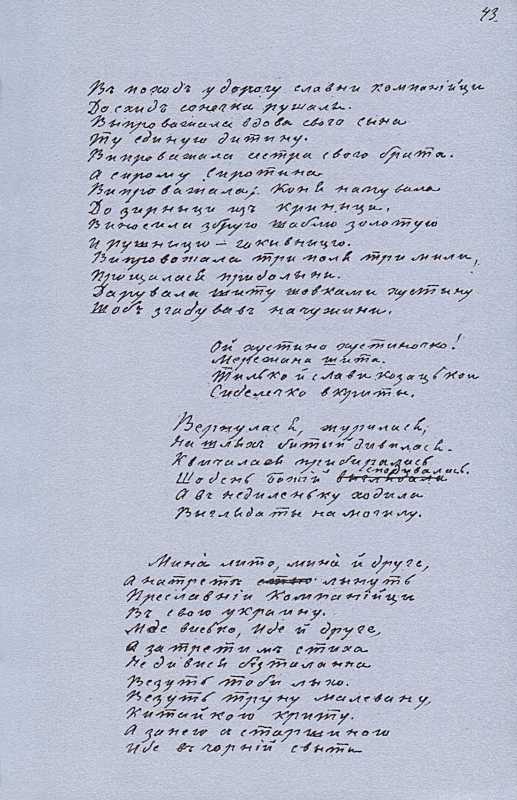 43
Въ походъ у дорогу славни компанійци
До схидъ сонечка рушалы.
Выпроважала вдова свого сына
Ту единую дитину.
Випроважала сестра свого брата.
А сирому Сиротина
Випроважала; Коня напувала
До зирныци изъ криныци.
Виносила збрую шаблю золотую
И рушницю – гакивницю.
Випровожала три поля три мили,
Прощалася при долыни.
Дарувала шиту шовками хустыну
Щобъ згадувавъ на чужини.
Ой хустино хустиночко!
Мережана шита.
Тилько й слави козацькои
Сиделечко вкрыты.
Вернулася, журилася,
На шляхъ битый дивилася.
Квичалася прибиралась
Що день божій сподивалась.
А въ недиленьку ходила
Выглядаты на могилу.
Мина лито, мина й друге,
А на третє лынуть
Преславніи Компанійци
Въ свою украину.
Иде висько, Иде й друге,
А за третимъ стиха
Не дивися безталанна
Везуть тоби лыхо.
Везуть труну малевану,
Китайкою криту.
А за нею съ старшиною
Иде въ чорній свыти